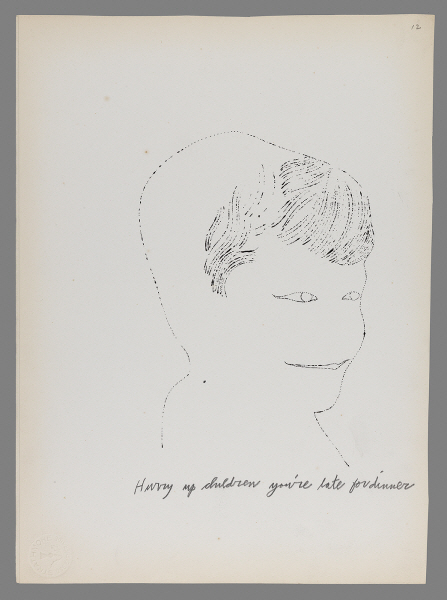 12
Hurry up children you're late for dinner